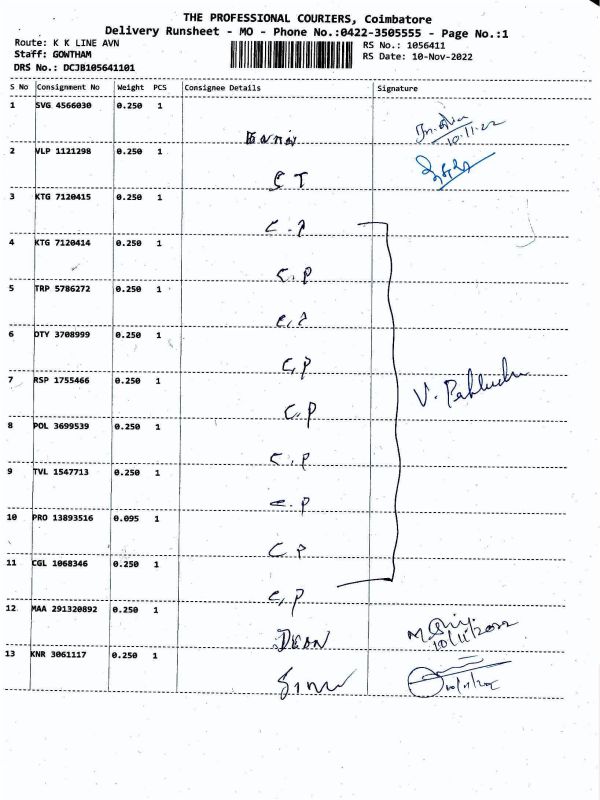 THE PROFESSIONAL COURIERS, Coimbatore
Delivery Runsheet - MO - Phone No.:0422-3505555 - Page No.:1
Route: K K LINE AVN
RS No.: 1056411
Staff: GOWTHAM
RS Date: 10-Nov-2022
DRS No.: DCJB105641101
S No Consignment No Weight PCS Consignee Details Signature
1 SVG 4566030 0.250 1
10.11.22
2 VLP 1121298 0.250 1
C T
3 KTG 7120415 0.250 1
C.P
4 KTG 7120414 0.250 1
C.P
5 TRP 5786272 0.250 1
C.P
6 DTY 3708999 0.250 1
C.P
7 RSP 1755466 0.250 1
V.
C.P
8 POL 3699539 0.250 1
C.P
9 TVL 1547713 0.250 1
C.P
10 PRO 13893516 0.095 1
C P
11 CGL 1068346 0.250 1
C.P
12 MAA 291320892 0.250 1
10/11/2022
13 KNR 3061117 0.250 1